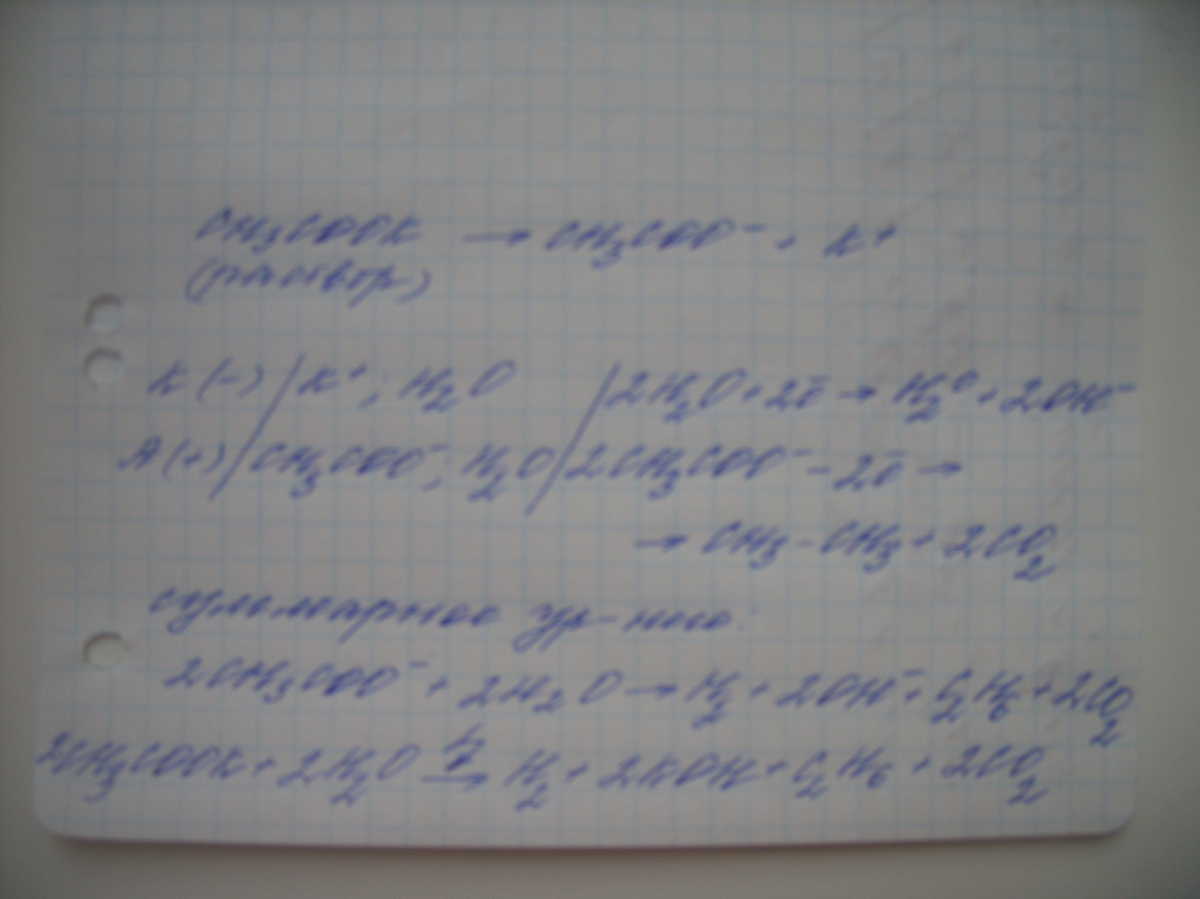 CH₃COOK → CH₃COO⁻ + K⁺
(раствор)
K(-) / K⁺; H₂O / 2H₂O + 2ē → H₂⁰ + 2OH⁻
A(+) / CH₃COO⁻; H₂O / 2CH₃COO⁻ - 2ē →
→ CH₃-CH₃ + 2CO₂
суммарное ур-ние:
2CH₃COO⁻ + 2H₂O → H₂ + 2OH⁻ + C₂H₆ + 2CO₂
2CH₃COOK + 2H₂O → H₂ + 2KOH + C₂H₆ + 2CO₂